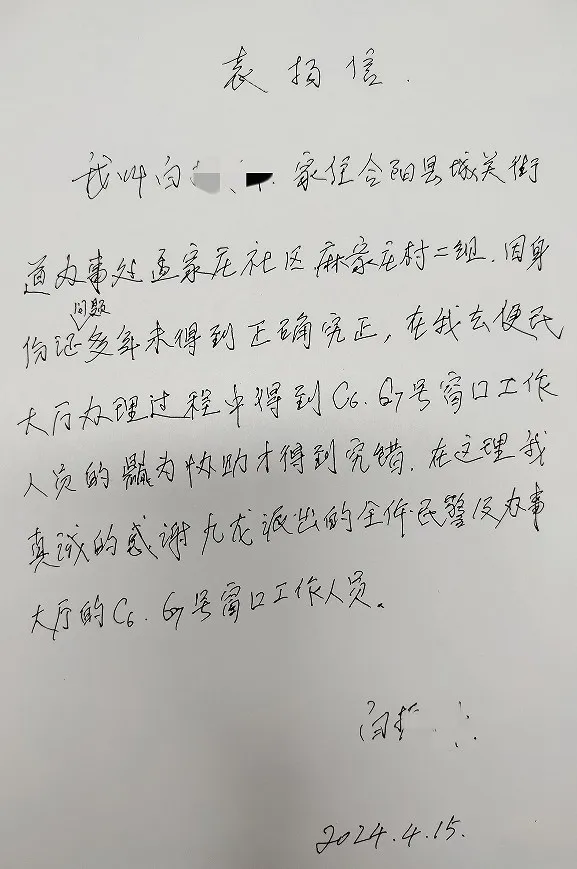 表扬信.
我叫向 家住合阳县城关街
道办事处孟家庄社区麻家庄村二组.因身
问题
份证多年未得到正确究正,在我去便民
大厅办理过程中得到C6.G7号窗口工作
人员的 为协助才得到究错.在这理我
真诚的感谢九龙派出的全体民警及办事
大厅的C6.G7号窗口工作人员。
2024.4.15.